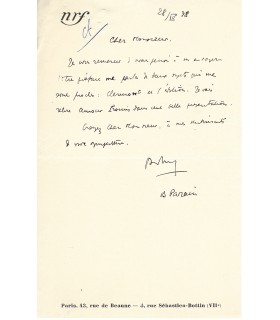 nrf
28/IV 78
Cher Monsieur,
Je vous remercie d'avoir pensé à m'envoyer
Votre préface me parle de deux sujets qui me
sont proches : Clermont et l'édition. Je vais
relire dans une belle présentation.
Croyez, cher Monsieur, à mes sentiments
de vive sympathie.
B Parain
Paris, 43, rue de Beaune — 5, rue Sébastien-Bottin (VIIe)